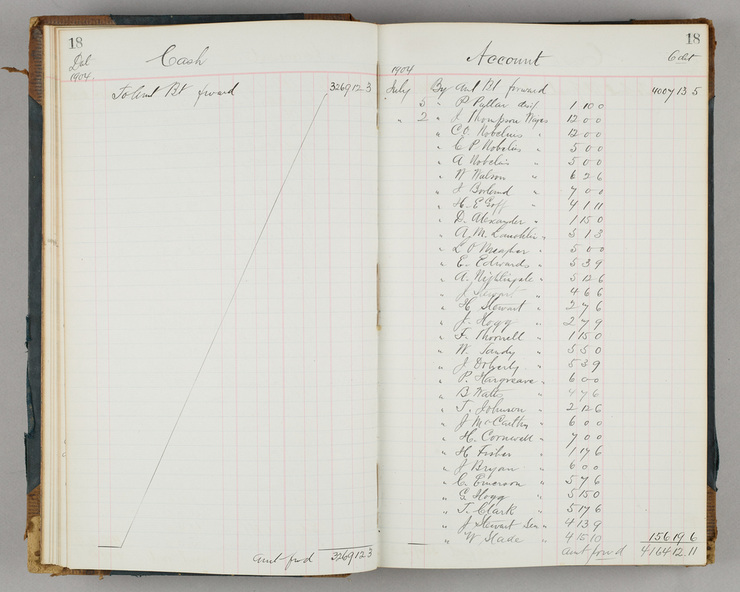 18
Cash
1904
To Amt Bt forward 3269 12 3
Amt fwd 3269 12 3
18
Account
1904
July By Amt Bt forward 4007 13 5
5 " P. 1 10 0
" 2 " J Thompson Wages 12 0 0
" C O Nobelius " 12 0 0
" C P Nobelius " 5 0 0
" A Nobelius " 5 0 0
" W Watson " 6 2 6
" J Borland " 7 0 0
" H. E Goff " 4 1 11
" D. Alexander " 1 15 0
" A. McLauchlin " 5 1 3
" L O Meagher " 5 0 0
" E. Edwards " 5 3 9
" A. Nightingale " 5 12 6
" J Stewart " 4 6 6
" H Stewart " 2 7 6
" J. Hogg " 2 7 9
" F. Thornell " 1 15 0
" W. Tandy " 5 5 0
" J Doherty " 5 3 9
" P. Hargreave " 6 0 0
" B Watts " 4 7 6
" T. Johnson " 2 12 6
" J McCarthy " 6 0 0
" H. Cornwall " 7 0 0
" H Fisher " 1 17 6
" J Bryan " 6 0 0
" C. Emerson " 5 7 6
" G Hogg " 5 15 0
" T. Clark " 5 17 6
" J. Stewart Sen " 4 13 9
" W Slade " 4 15 10 156 19 6
Amt forwd 4164 12 11